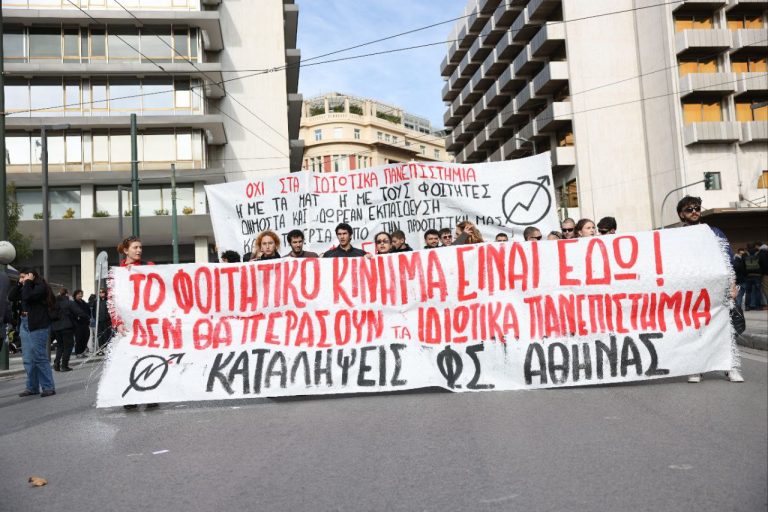 ΟΧΙ ΣΤΑ ΙΔΙΩΤΙΚΑ ΠΑΝΕΠΙΣΤΗΜΙΑ
Ή ΜΕ ΤΑ ΜΑΤ Ή ΜΕ ΤΟΥΣ ΦΟΙΤΗΤΕΣ
ΔΗΜΟΣΙΑ ΚΑΙ ΔΩΡΕΑΝ ΕΚΠΑΙΔΕΥΣΗ
ΠΡΟΟΠΤΙΚΗ ΜΑΣ
ΤΟ ΦΟΙΤΗΤΙΚΟ ΚΙΝΗΜΑ ΕΙΝΑΙ ΕΔΩ!
ΔΕΝ ΘΑ ΠΕΡΑΣΟΥΝ ΤΑ ΙΔΙΩΤΙΚΑ ΠΑΝΕΠΙΣΤΗΜΙΑ
ΚΑΤΑΛΗΨΕΙΣ ΦΣ ΑΘΗΝΑΣ